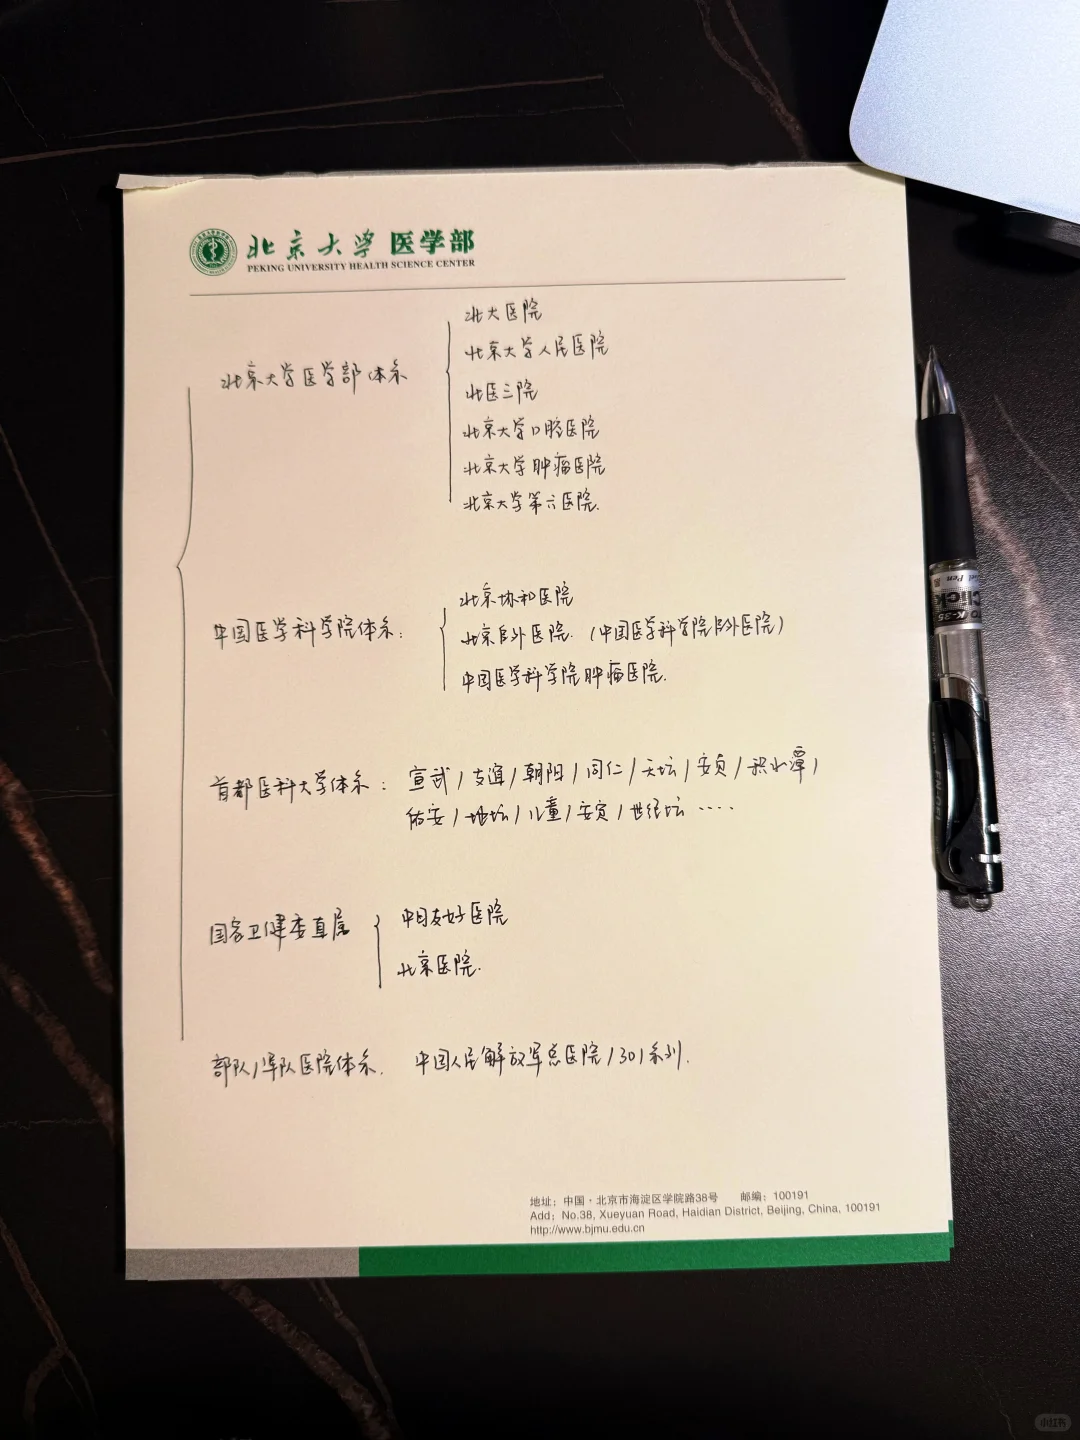 北京大学 医学部
PEKING UNIVERSITY HEALTH SCIENCE CENTER
北京大学医学部体系
北大医院
北京大学人民医院
北医三院
北京大学口腔医院
北京大学肿瘤医院
北京大学第六医院.
中国医学科学院体系:
北京协和医院
北京阜外医院. (中国医学科学院阜外医院)
中国医学科学院肿瘤医院.
首都医科大学体系: 宣武/友谊/朝阳/同仁/天坛/安贞/积水潭/
佑安/地坛/儿童/安贞/世纪坛 ....
国家卫健委直属
中日友好医院
北京医院.
部队/军队医院体系. 中国人民解放军总医院/301系列.
地址：中国·北京市海淀区学院路38号 邮编：100191
Add: No.38, Xueyuan Road, Haidian District, Beijing, China, 100191
http://www.bjmu.edu.cn
K-35
小红书